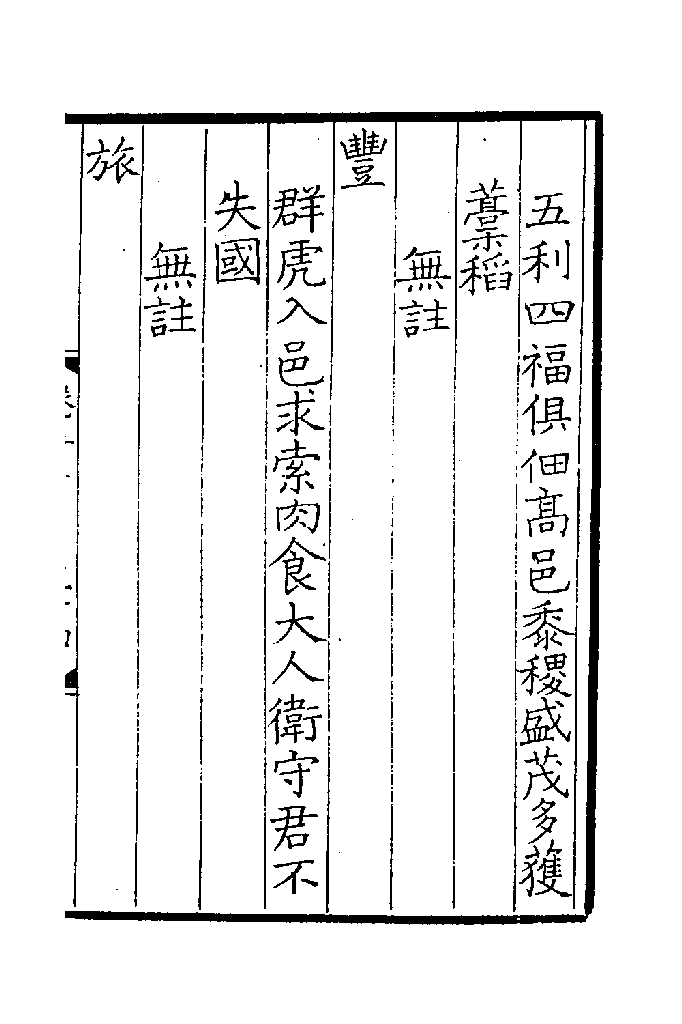 五利四福俱佃高邑黍稷盛茂多獲
藁稻
無註
豐
群虎入邑求索肉食大人衛守君不
失國
無註
旅